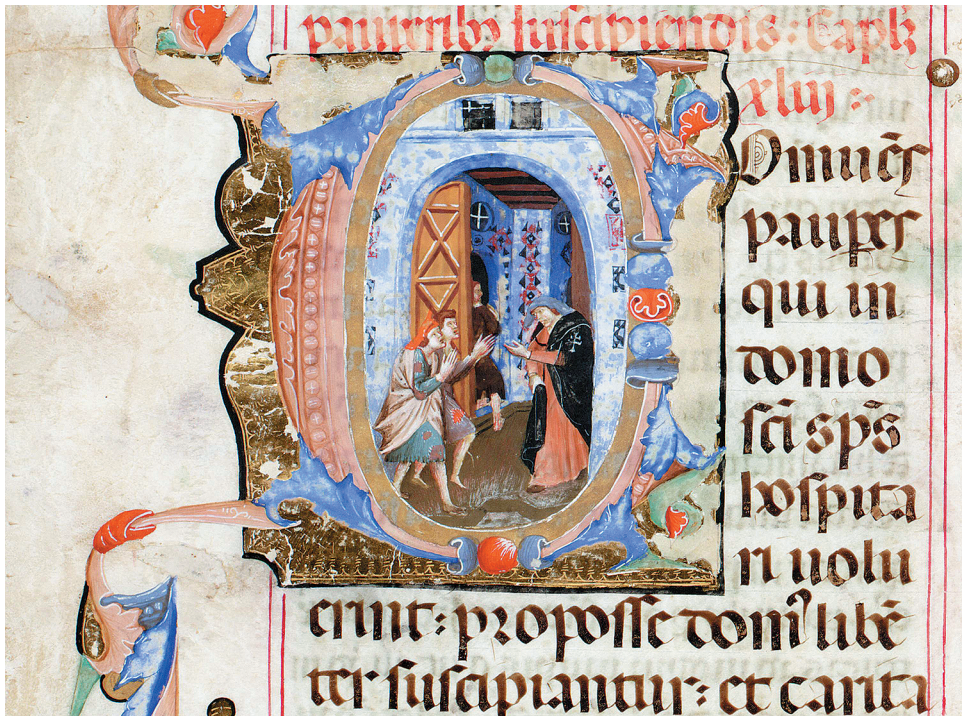 pauperibꝫ suscipiendis: Capł
xliij:
Omnēs
paupes
qui in
domo
sci sps̄
hospita
ri uolu
erint: pro posse domꝰ libē
ter suscipiantur: et carita